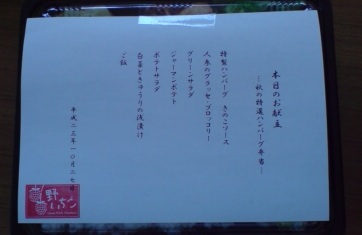 本日のお献立
―秋の特選ハンバーグ弁当―
特製ハンバーグ きのこソース
人参のグラッセ・ブロッコリー
グリーンサラダ
ジャーマンポテト
ポテトサラダ
白菜ときゅうりの浅漬け
ご飯
平成二三年一〇月二七